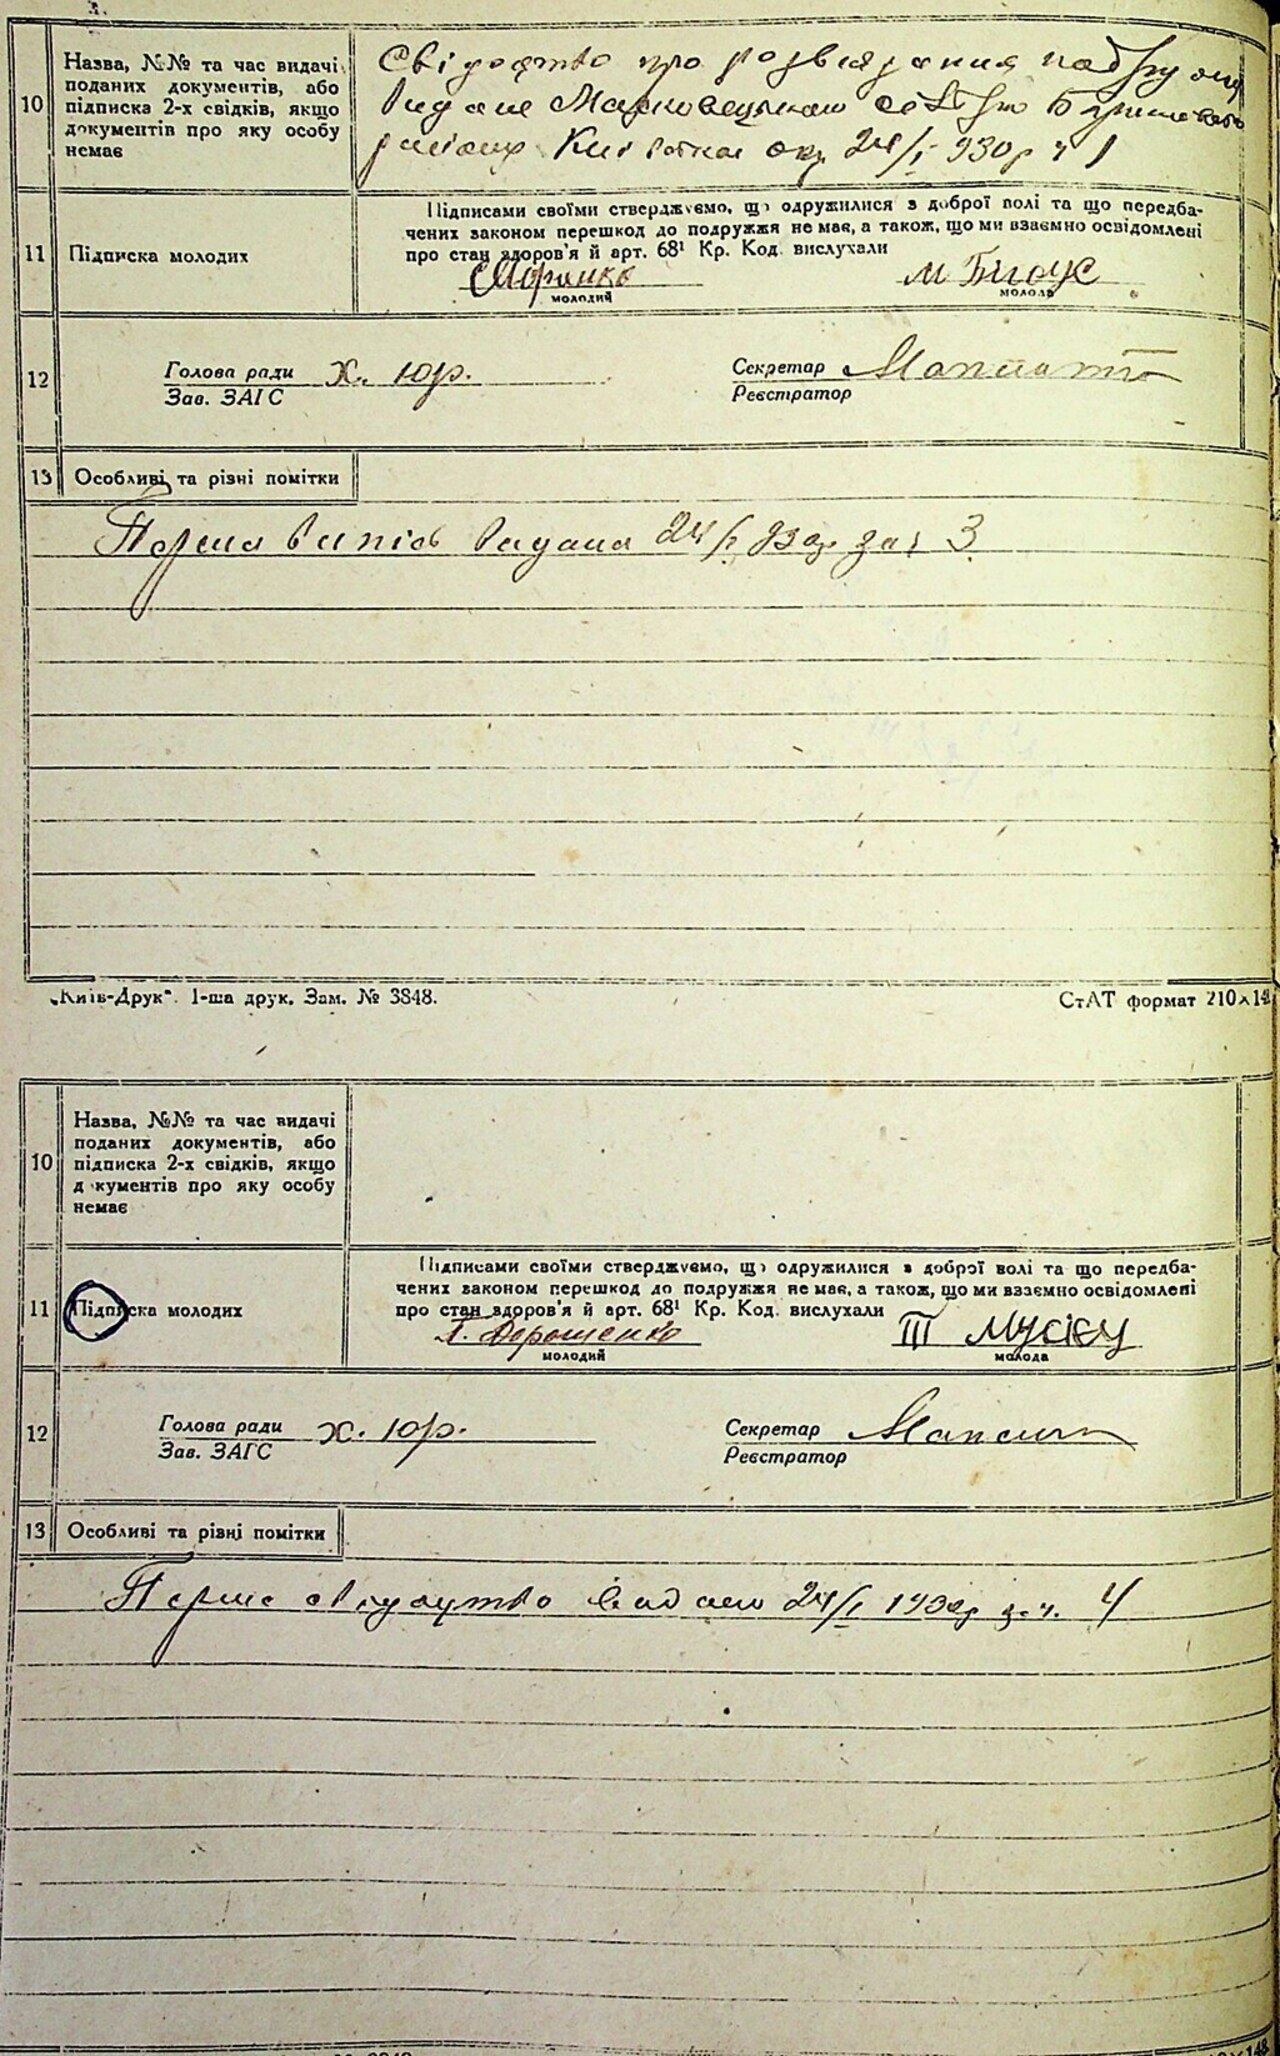 10
Назва, №№ та час видачі
поданих документів, або
підписка 2-х свідків, якщо
документів про яку особу
немає
Свідоцтво про розвязання
видане
Київської окр 24/I 930р ч 1
11
Підписка молодих
Підписами своїми стверджуємо, що одружилися з доброї волі та що передба-
чених законом перешкод до подружжя не має, а також, що ми взаємно освідомлені
про стан здоров'я й арт. 68¹ Кр. Код. вислухали
молодий
М Білоус
молода
12
Голова ради Х. Юр.
Зав. ЗАГС
Секретар
Реєстратор
13
Особливі та різні помітки
Перша випись видана 24/I 930р за ч 3
„Київ-Друк". 1-ша друк. Зам. № 3848.
СтАТ формат 210×148
10
Назва, №№ та час видачі
поданих документів, або
підписка 2-х свідків, якщо
д кументів про яку особу
немає
11
Підписка молодих
Підписами своїми стверджуємо, що одружилися з доброї волі та що передба-
чених законом перешкод до подружжя не має, а також, що ми взаємно освідомлені
про стан здоров'я й арт. 68¹ Кр. Код. вислухали
Дорошенко
молодий
молода
12
Голова ради Х. Юр.
Зав. ЗАГС
Секретар
Реєстратор
13
Особливі та різні помітки
Перше свідоцтво видано 24/I 1930р за ч. 4